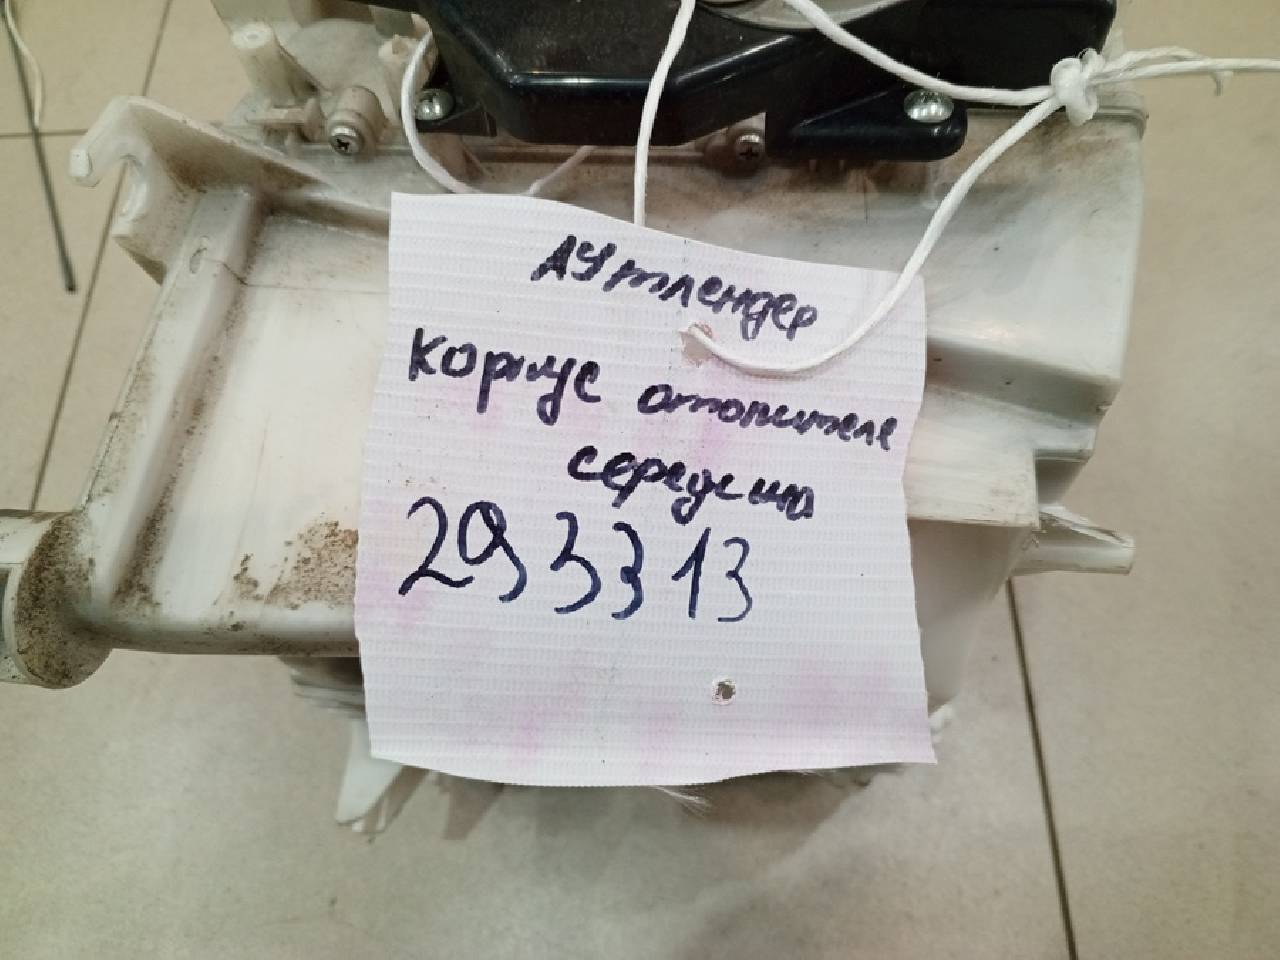 Аутлендер
Корпус отопителе
середина
293313